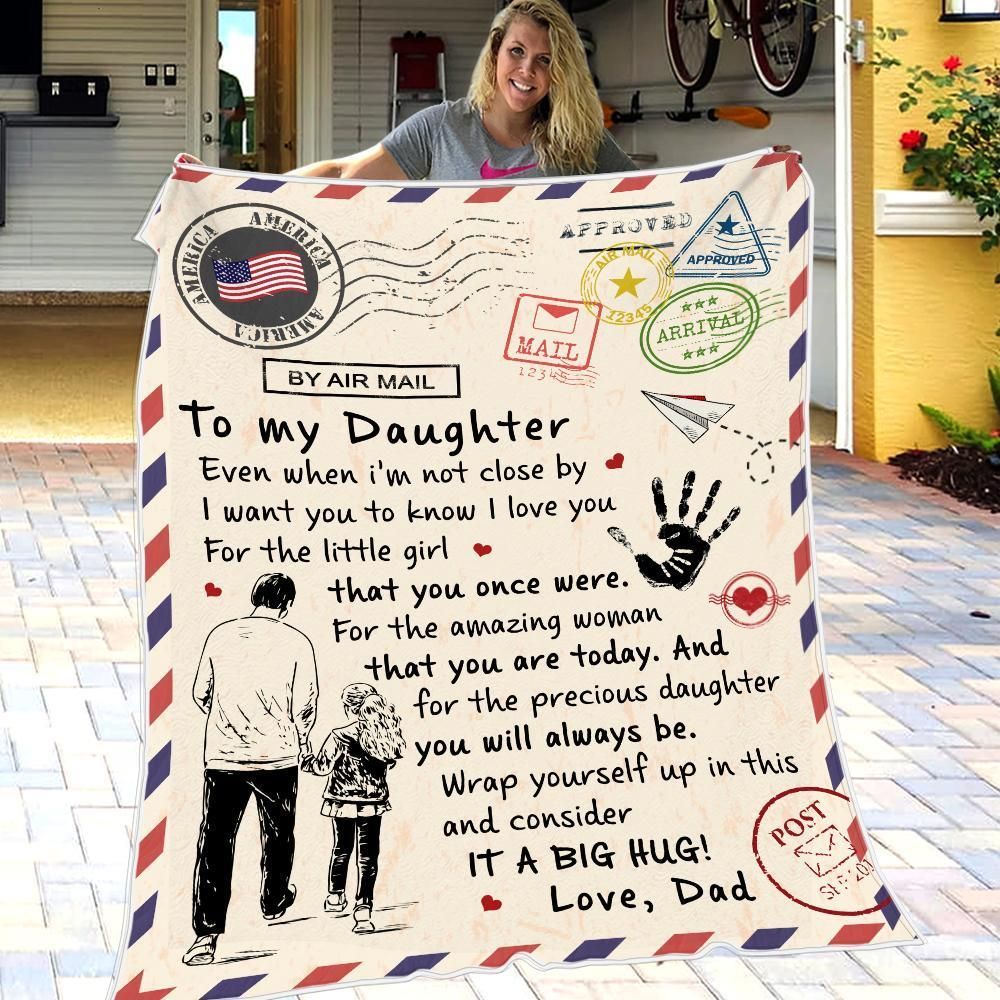 AMERICA
AMERICA
AMERICA
AMERICA
APPROVED
APPROVED
AIR MAIL
12345
ARRIVAL
MAIL
12345
BY AIR MAIL
To my Daughter
Even when i'm not close by
I want you to know I love you
For the little girl
that you once were.
For the amazing woman
that you are today. And
for the precious daughter
you will always be.
Wrap yourself up in this
and consider
IT A BIG HUG!
Love, Dad
POST